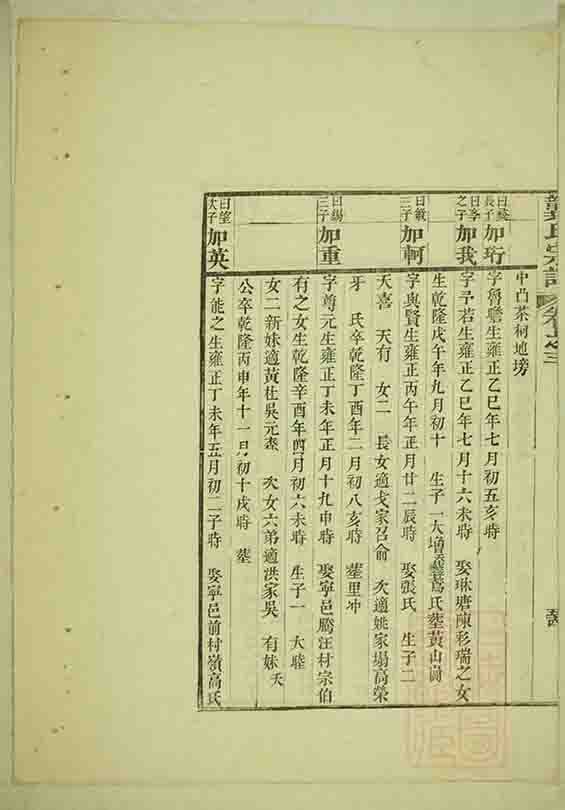 氏宗譜 卷之三
中凸茶祠地塝
曰
長子
加珩
字魯瞻生雍正乙巳年七月初五亥時
曰
之子
加我
字予若生雍正乙巳年七月十六未時 娶琳塘陳彩瑞之女
生乾隆戊午年九月初十 生子一大增 氏塟黃山崗
曰
三子
加軻
字與賢生雍正丙午年正月廿二辰時 娶張氏 生子二
天喜 天有 女二 長女適戈家召俞 次適姚家塌高榮
牙 氏卒乾隆丁酉年二月初八亥時 塟里冲
曰錫
三子
加重
字尊元生雍正丁未年正月十九申時 娶寧邑騰汪村宗伯
有之女生乾隆辛酉年四月初六未時 生子一 大陸
女二新妹適黃杜吳元 次女六弟適洪家吳 有妹夭
公卒乾隆丙申年十一月初十戌時 塟
曰望
次子
加英
字能之生雍正丁未年五月初二子時 娶寧邑前村嶺高氏